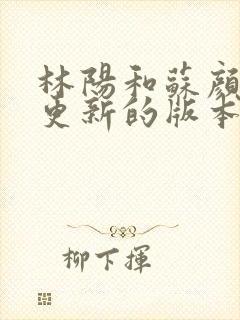 林陽和蘇顏
更新的版本
柳下揮